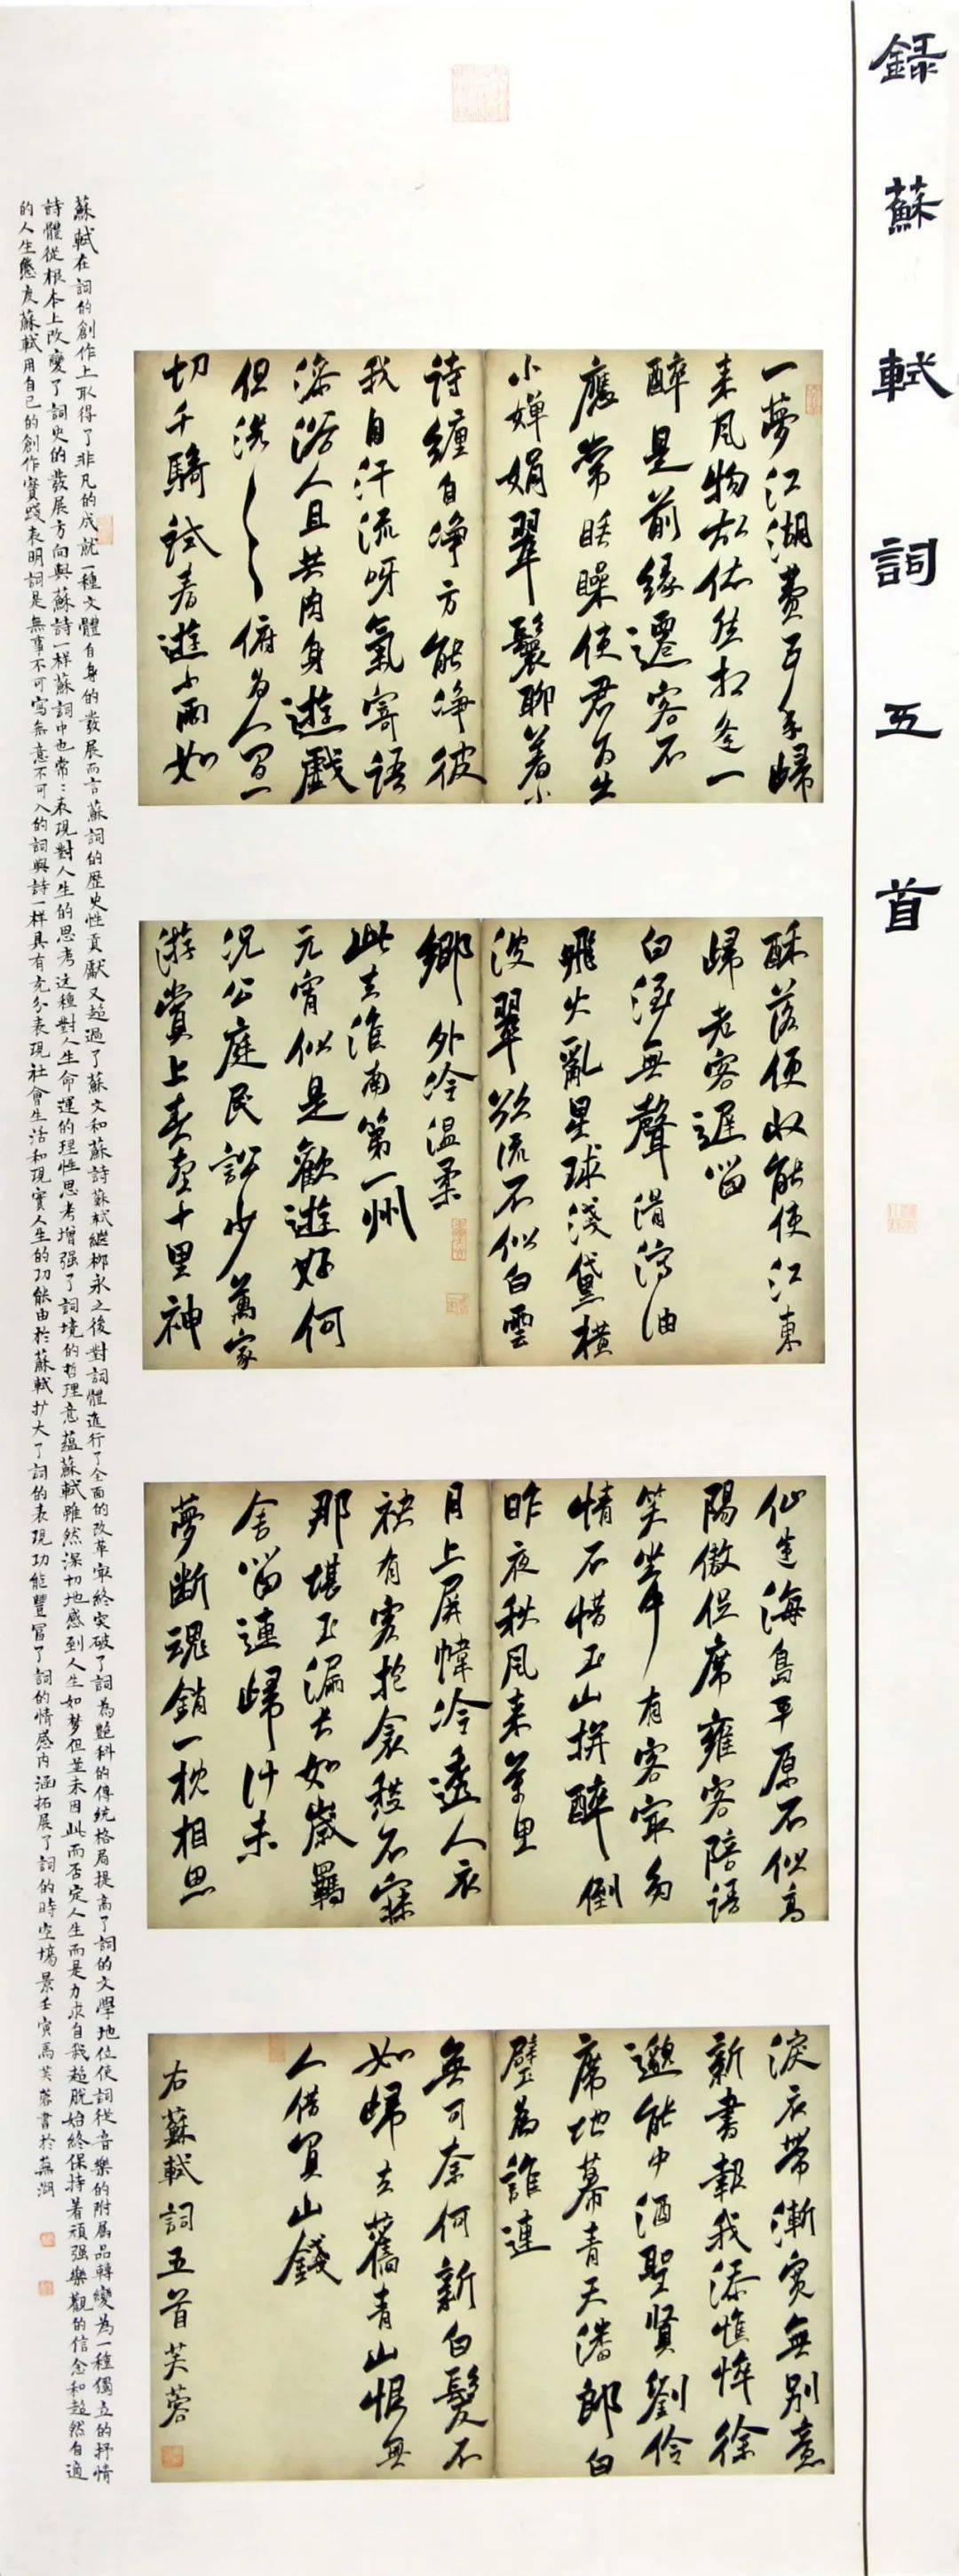 錄蘇軾詞五首
一夢江湖費五年歸
來風物故依然相逢一
醉是前緣遷客不
應常眊矂使君為出
小嬋娟翠鬟聊著小
詩纏自淨方能淨彼
我自汗流呀氣寄語
澡浴人且共肉身遊戲
但洗〻俯為人間一
切千騎試春遊小雨如
酥落便收能使江東
歸老客遲留
白酒無聲滑瀉油
飛火亂星球淺黛橫
波翠欲流不似白雲
鄉外冷溫柔
此去淮南第一州
元宵似是歡遊好何
況公庭民訟少萬家
游賞上春臺十里神
仙迷海島平原不似高
陽傲促席雍容陪語
笑坐中有客最多
情不惜玉山拚醉倒
昨夜秋風來萬里
月上屏幃冷透人衣
袂有客抱衾愁不寐
那堪玉漏長如歲羈
舍留連歸計未
夢斷魂銷一枕相思
淚衣帶漸寬無別意
新書報我添憔悴徐
邈能中酒聖賢劉伶
席地幕青天潘郎白
璧為誰連
無可奈何新白髮不
如歸去舊青山恨無
人借買山錢
右蘇軾詞五首芙蓉
蘇軾在詞的創作上取得了非凡的成就一種文體自身的發展而言蘇詞的歷史性貢獻又超過了蘇文和蘇詩蘇軾繼柳永之後對詞體進行了全面的改革最終突破了詞為艷科的傳統格局提高了詞的文學地位使詞從音樂的附屬品轉變為一種獨立的抒情
詩體從根本上改變了詞史的發展方向與蘇詩一樣蘇詞中也常〻表現對人生的思考這種對人生命運的理性思考增强了詞境的哲理意蘊蘇軾雖然深切地感到人生如梦但並未因此而否定人生而是力求自我超脫始終保持著頑强樂觀的信念和超然自適
的人生態度蘇軾用自己的創作實踐表明詞是無事不可寫無意不可入的詞與詩一样具有充分表現社會生活和現實人生的功能由於蘇軾扩大了詞的表現功能豐富了詞的情感内涵拓展了詞的時空場景壬寅馬芙蓉書於蕪湖